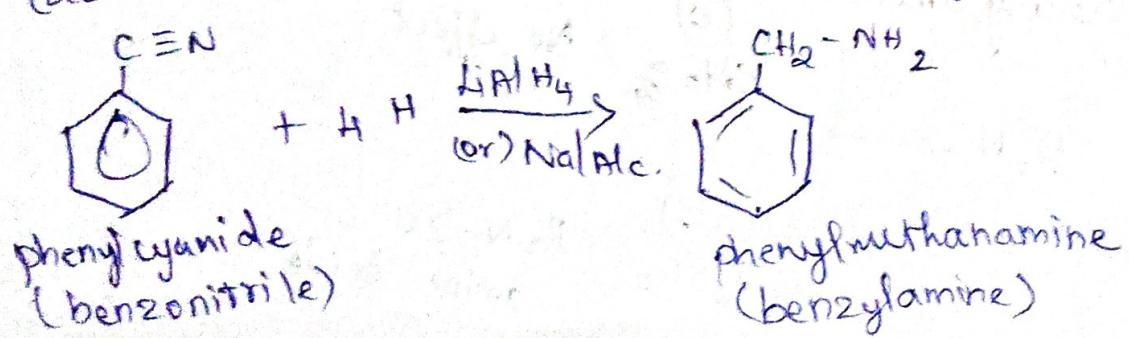 C≡N
CH₂-NH₂
+ 4 H
LiAlH₄
(or) Na/Alc.
phenyl cyanide
(benzonitrile)
phenylmethanamine
(benzylamine)